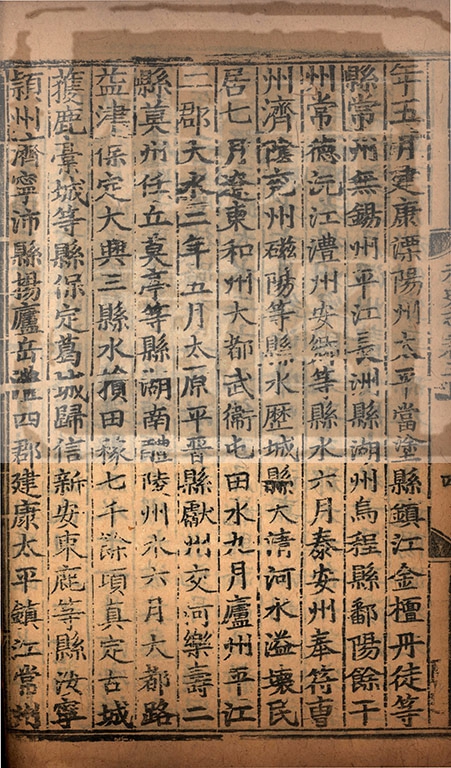 年五月建康溧陽州太平當塗縣鎮江金檀丹徒等
縣常州無錫州平江長洲縣湖州烏程縣鄱陽餘干
州常德沅江澧州安鄉等縣水六月泰安州奉符曹
州濟陰兖州磁陽等縣水歷城縣大清河水溢壞民
居七月遼東和州大都武衞屯田水九月廬州平江
二郡大水二年五月太原平晉縣獻州交河樂壽二
縣莫州任丘莫亭等縣湖南醴陵州水六月大都路
益津保定大興三縣水損田稼七千餘頃真定古城
獲鹿藁城等縣保定葛城歸信新安束鹿等縣汝寧
潁州濟寧沛縣揚廬岳澧四郡建康太平鎮江常州